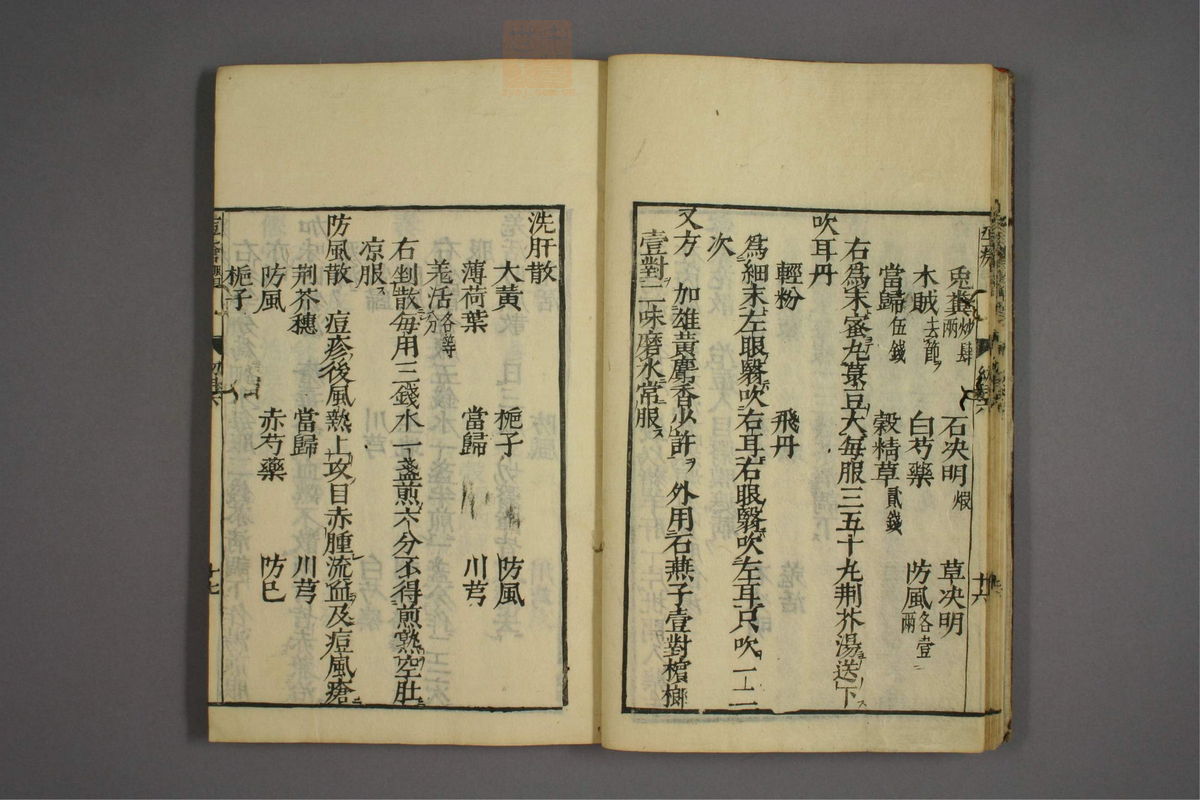 兎糞炒肆兩　石决明煆　草决明
木賊去節　白芍藥　防風各壹兩
當歸伍錢　榖精草貳錢
右為末蜜丸菉豆大每服三五十丸荆芥湯送下
吹耳丹
輕粉　飛丹
為細末左眼翳吹右耳右眼翳吹左耳只吹一二
次
又方　加雄黄麝香少許　外用石燕子壹對檳榔
壹對二味磨水常服
洗肝散
大黄　梔子　防風
薄荷葉　當歸　川芎
羌活各等分
右剉散每用三錢水一盞煎六分不得煎熟空肚
凉服
防風散　痘疹後風熱上攻目赤腫流血及痘風瘡
荆芥穗　當歸　川芎
防風　赤芍藥　防已
梔子